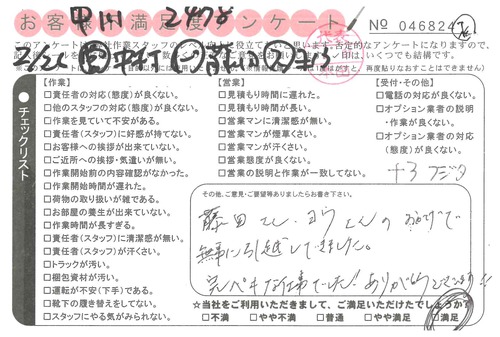 お客様満足度アンケート
甲州 2478
№ 046824
このアンケートは
役立てたいと思います。否定的なアンケートになりますので、
いくつでも結構です。
再度貼りなおすことはできません)
●チェックリスト
【作業】
□責任者の対応(態度)が良くない。
□他のスタッフの対応(態度)が良くない。
□作業を見ていて不安がある。
□責任者(スタッフ)に好感が持てない。
□お客様への挨拶が出来ていない。
□ご近所への挨拶・気遣いが無い。
□作業開始前の内容確認がなかった。
□作業開始時間が遅れた。
□荷物の取り扱いが雑である。
□お部屋の養生が出来ていない。
□作業時間が長すぎる。
□責任者(スタッフ)に清潔感が無い。
□責任者(スタッフ)が汗くさい。
□トラックが汚い。
□梱包資材が汚い。
□運転が不安(下手)である。
□靴下の履き替えをしてない。
□スタッフにやる気がみられない。
【営業】
□見積もり時間に遅れた。
□見積もり時間が長い。
□営業マンに清潔感が無い。
□営業マンが煙草くさい。
□営業マンが汗くさい。
□営業態度が良くない。
□営業の説明と作業が一致してない。
【受付・その他】
□電話の対応が良くない。
□オプション業者の説明・作業が良くない。
□オプション業者の対応(態度)が良くない。
その他、ご意見・ご要望等ありましたらお書き下さい。
藤田さん、ヨウさんのおかげで
無事に引越しできました。
完ペキな仕事でした!ありがとうございます!!
☆当社をご利用いただきまして、ご満足いただけたでしょうか?
□不満 □やや不満 □普通 □やや満足 □満足